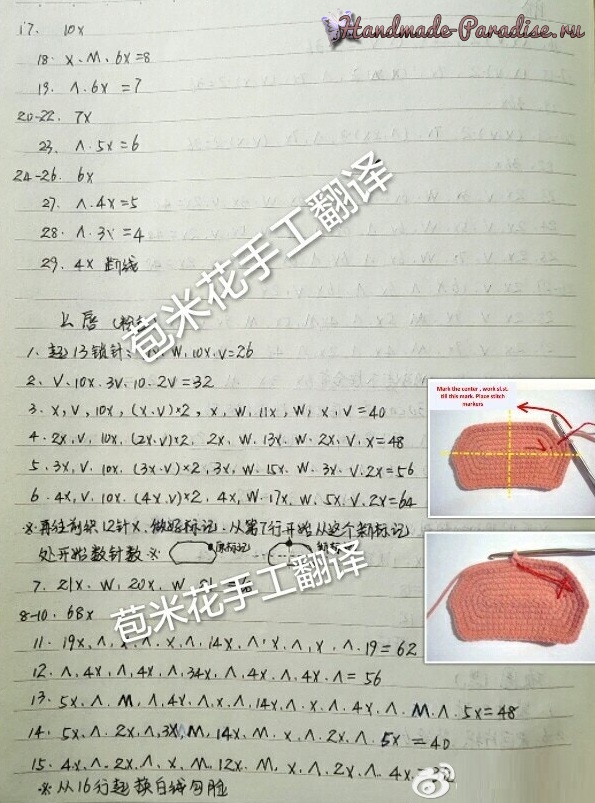 Handmade-Paradise.ru
17. 10x
18. x. M. 6x = 8
19. Λ. 6x = 7
20-22. 7x
23. Λ. 5x = 6
24-26. 6x
27. Λ. 4x = 5
28. Λ. 3x = 4
29. 4x 断线
苞米花手工翻译
上唇
1. 起13锁针, W, 10x, V = 26
2. V. 10x. 3V. 10. 2V = 32
3. x, V, 10x, (x.V)×2, x, W, 11x, W, x, V = 40
4. 2x, V, 10x, (2x.V)×2, 2x, W. 13x. W. 2x. V. x = 48
5. 3x, V. 10x. (3x.V)×2, 3x, W. 15x. W. 3x. V. 2x = 56
6. 4x, V. 10x. (4x.V)×2, 4x, W. 17x, W. 5x. V. 2x = 64
※再往前织12针x, 做好标记, 从第7行开始从这个新标记
处开始数针数※ 原标记 新标
Mark the center , work sl.st. till this mark. Place stitch markers
7. 21x. W. 20x. W.
8-10. 68x
苞米花手工翻译
11. 19x, Λ, x, Λ. x. Λ, 14x, Λ, x, Λ, x, Λ. 19 = 62
12. Λ, 4x, Λ, 4x, Λ, 34x, Λ, 4x, Λ, 4x, Λ = 56
13. 5x, Λ. M, Λ, 4x, Λ, x, Λ, 14x, Λ, x, Λ. 4x, Λ. M. Λ. 5x = 48
14. 5x. Λ. 2x. Λ. 3x, M, 14x, M. x, Λ. 2x, Λ. 5x = 40
15. 4x. Λ. 2x. Λ. x. M. 12x. M. x, Λ, 2x, Λ, 4x =
※从16行起换白线勾脸